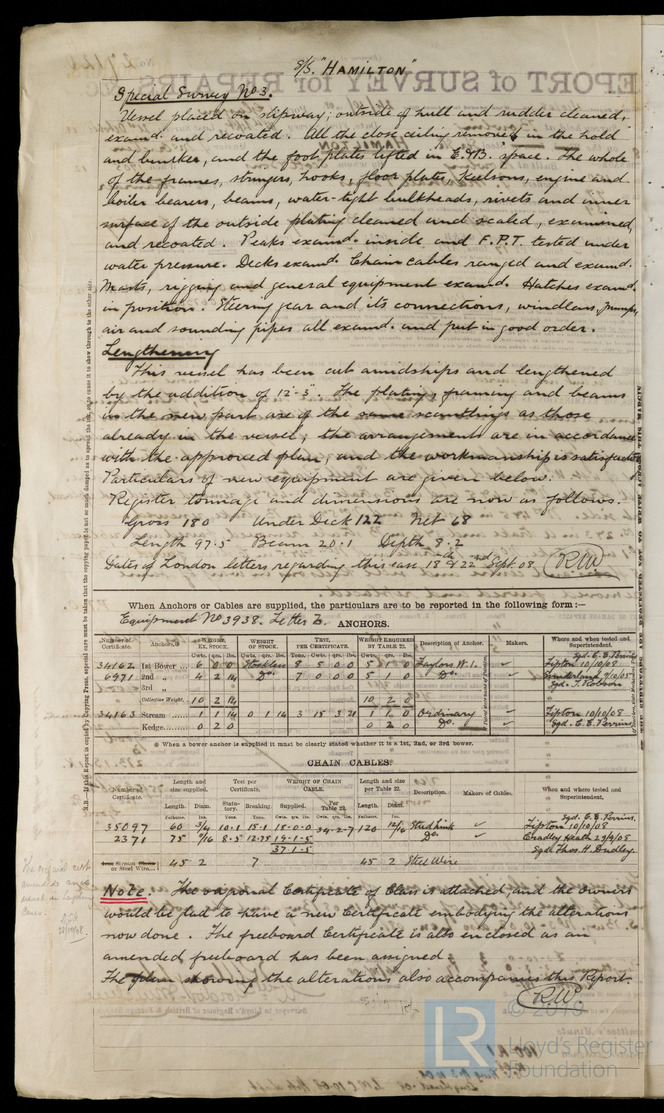 S/S. "HAMILTON"
Special Survey No 3.
Vessel placed on slipway; outside of hull and rudder cleaned,
examd. and recoated. All the close ceiling removed in the hold
and bunker, and the foot plates lifted in E.&B. space. The whole
of the frames, stringers, hooks, floor plates, keelsons, engine and
boiler bearers, beams, water-tight bulkheads, rivets and inner
surface of the outside plating cleaned and scaled, examined,
and recoated. Peaks examd. inside and F.P.T. tested under
water pressure. Decks examd. Chain cables ranged and examd.
Masts, rigging and general equipment examd. Hatches examd.
in position. Steering gear and its connections, windlass, pumps,
air and sounding pipes all examd. and put in good order.
Lengthening
This vessel has been cut amidships and lengthened
by the addition of 12'-3". The plating framing and beams
in the new part are of the same scantlings as those
already in the vessel; the arrangements are in accordance
with the approved plan, and the workmanship is satisfactory
Particulars of new equipment are given below.
Register tonnage and dimensions are now as follows.
Gross 180 Under Deck 122 Net 68
Length 97.5 Beam 20.1 Depth 8.2
Dates of London letters regarding this case 18th & 22nd Sept. 08. RW.
When Anchors or Cables are supplied, the particulars are to be reported in the following form:—
Equipment No 3938. Letter Z. ANCHORS.
Number of Certificate. Anchors. WEIGHT, EX. STOCK. WEIGHT OF STOCK. TEST, PER CERTIFICATE. WEIGHT REQUIRED BY TABLE 22. Description of Anchor. Makers. Where and when tested and Superintendent.
Cwts. qrs. lbs. Cwts. qrs. lbs. Tons. Cwts. qrs. lbs. Cwts. qrs. lbs.
34162 1st Bower 6 0 0 Stockless 8 5 0 0 5 1 0 Taylors W.I. ✓ Tipton 10/10/08
6971 2nd „ 4 2 14 Do. 7 0 0 0 5 1 0 Do. ✓ Sunderland 9/10/05
3rd „ Sgd. J. Robson
Collective Weight, 10 2 14 10 2 0
34163 Stream 1 1 14 0 1 14 3 15 3 21 1 1 0 Ordinary ✓ Tipton 10/10/08
Kedge 0 2 0 0 2 0 Do. ✓ Sgd. E. E. Perrins
When a bower anchor is supplied it must be clearly stated whether it is a 1st, 2nd, or 3rd bower.
CHAIN CABLES.
Number of Certificate. Length and size supplied. Test per Certificate. WEIGHT OF CHAIN CABLE. Length and size per Table 22. Description. Makers of Cables. When and where tested and Superintendent.
Length. Diam. Statutory. Breaking. Supplied. Per Table 22. Length. Diam.
35097 60 3/4 10.1 15.1 18-0-0 34-2-7 120 12/16 Stud Link ✓ Tipton 10/10/08
2371 75 11/16 8.5 12.75 19-1-5 Do. ✓ Cradley Heath 29/9/08
37.1.5 Sgd. Thos. H. Dudley
or Steel Wire 45 2 7 45 2 Steel Wire
Note. The original Certificate of Class is attached and the owners
would be glad to have a new Certificate embodying the alterations
now done. The freeboard Certificate is also enclosed as an
amended freeboard has been assigned
The plan showing the alterations also accompanies this Report.
RW.
© 2019
LR Lloyd's Register
Foundation